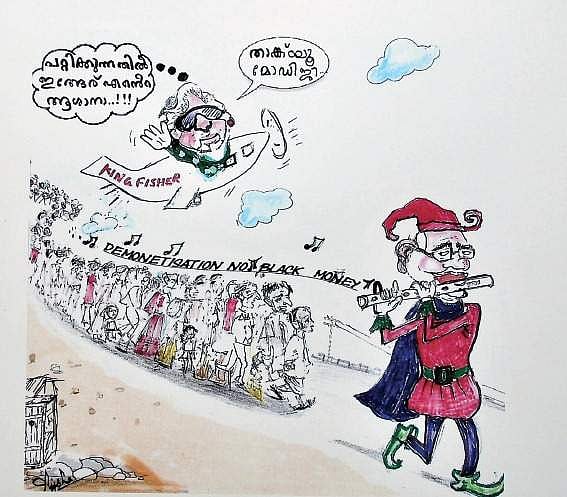 പറ്റിക്കുന്നതിൽ
ഇങ്ങേര് എൻറെ
ആശാനാ..!!!
താങ്ക്യൂ
മോഡിജി
KING FISHER
DEMONETISATION NO BLACK MONEY